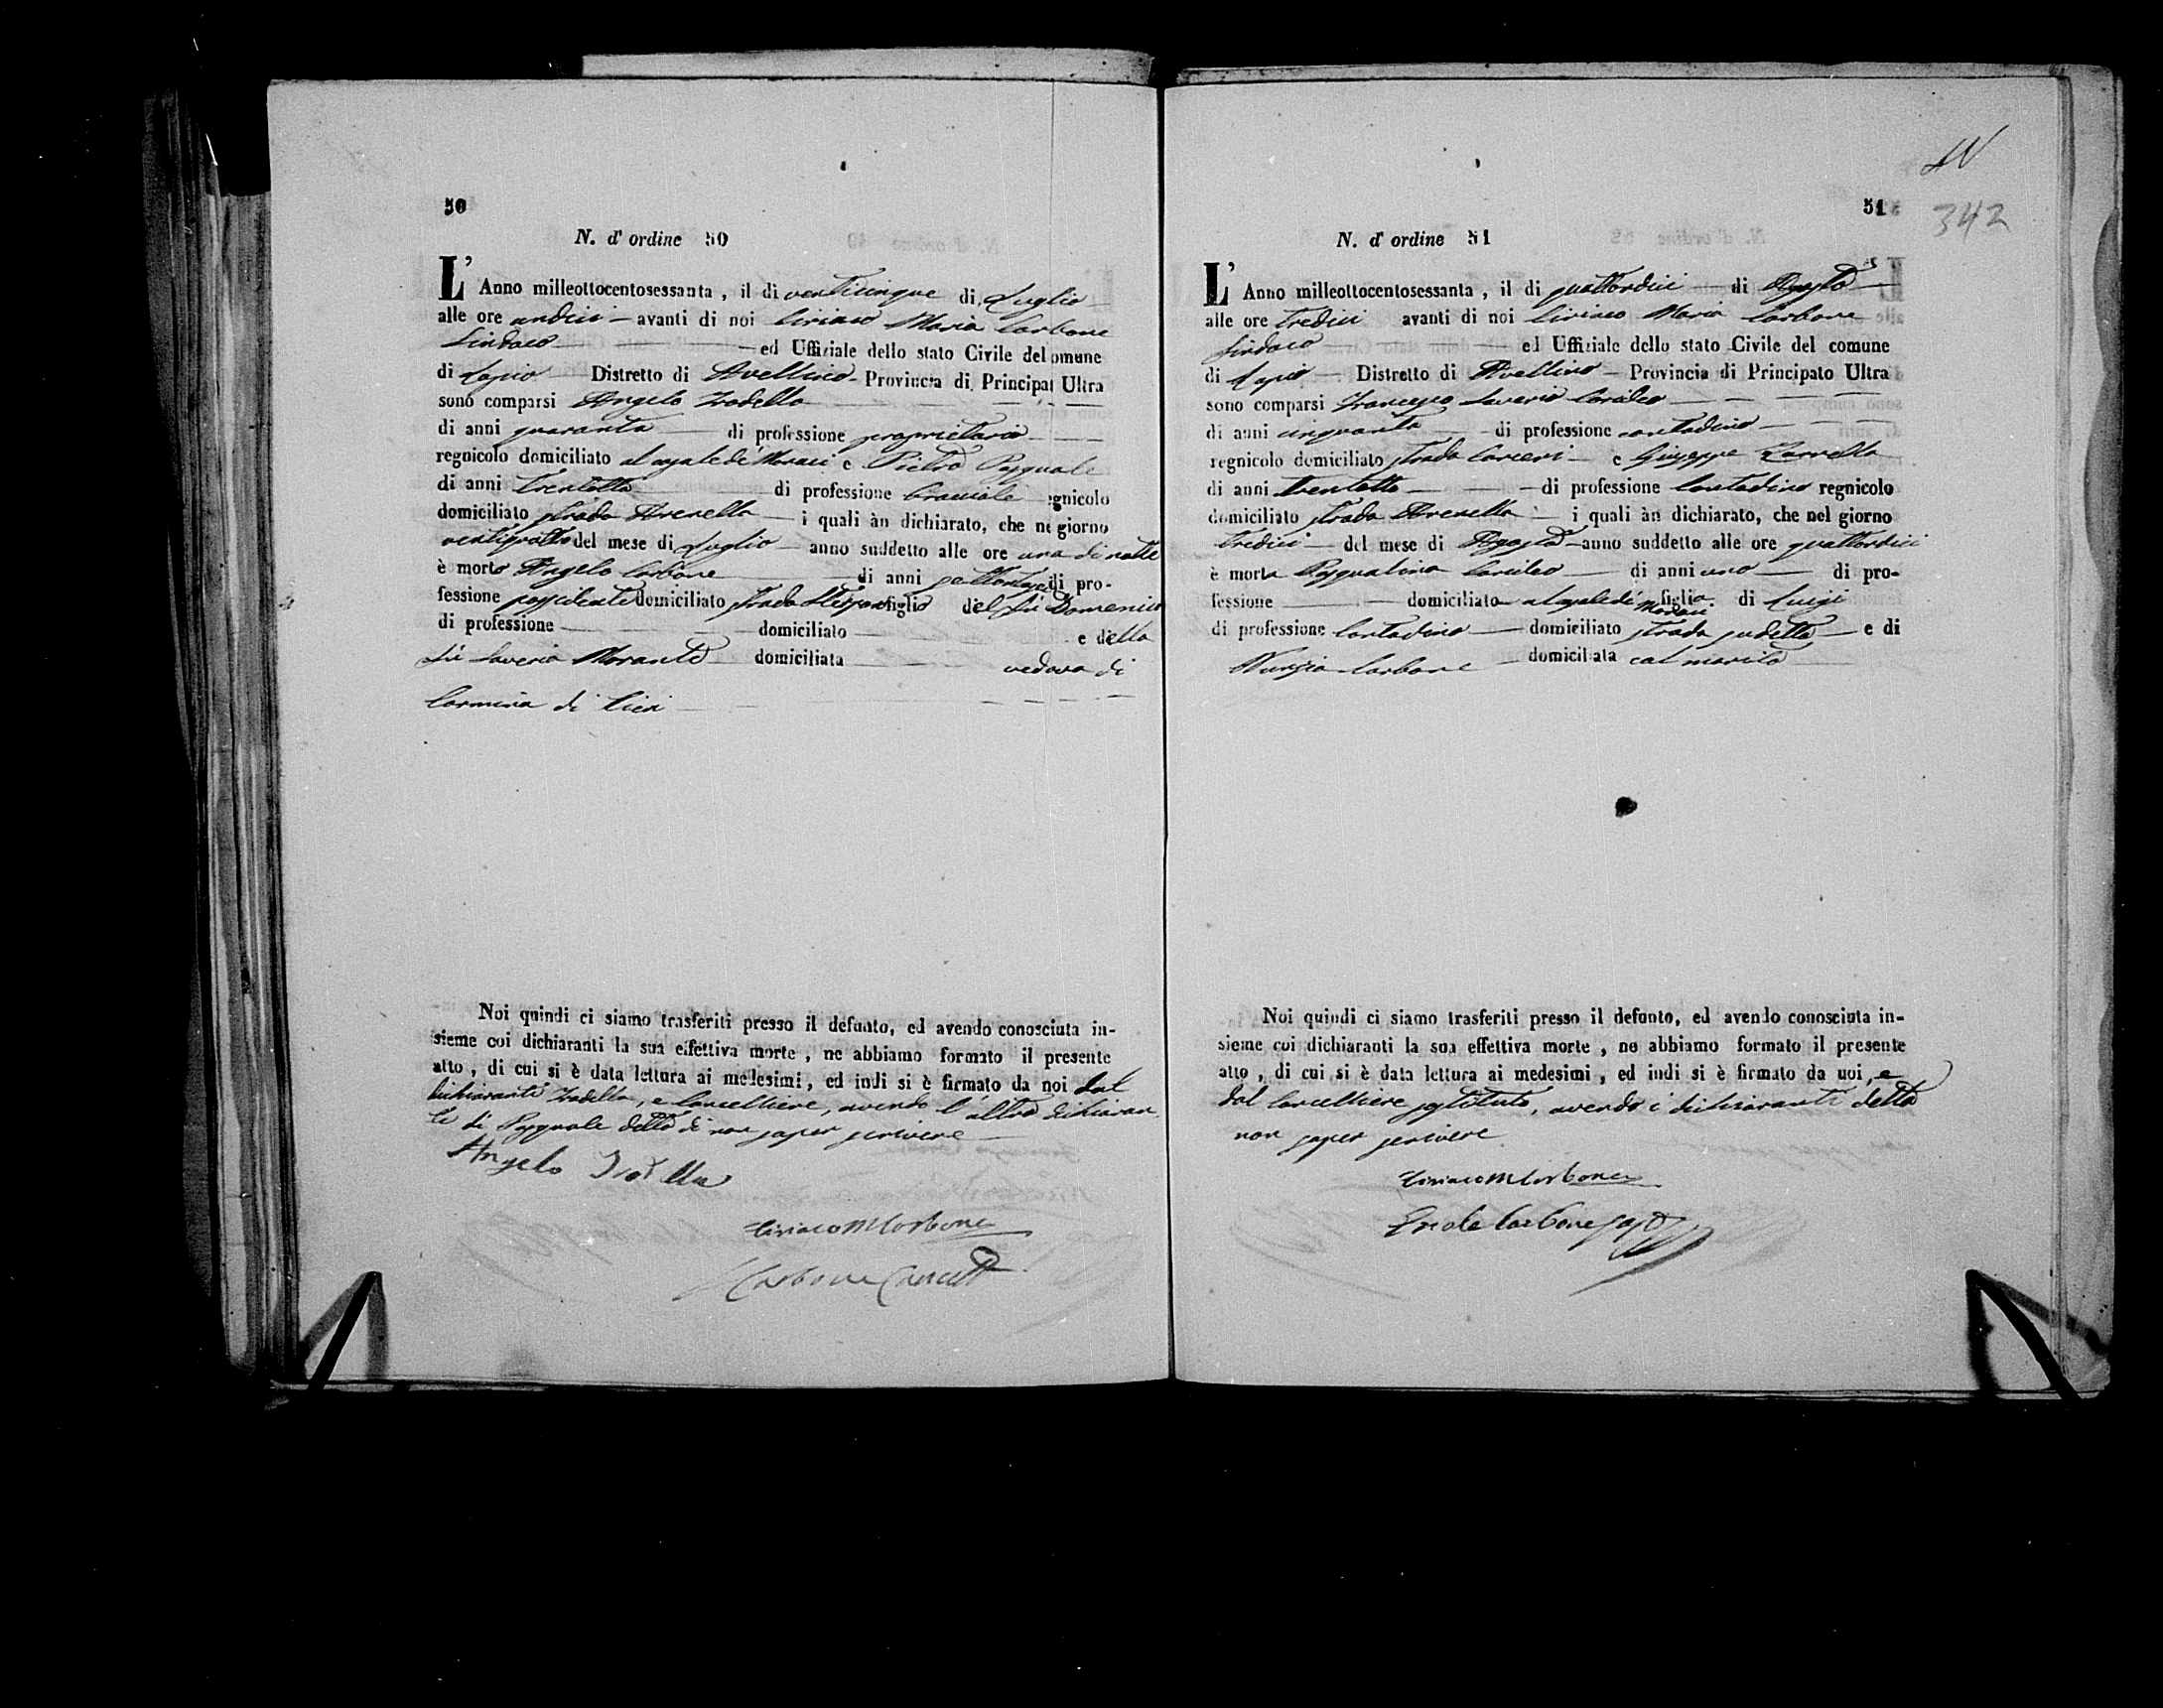 50
N. d' ordine 50
L' Anno milleottocentosessanta, il di venticinque di Luglio
alle ore undici avanti di noi Ciriaco Maria Carbone
Sindaco ed Uffiziale dello stato Civile del omune
di Lapio Distretto di Avellino Provincia di Principat Ultra
sono comparsi Angelo
di anni quaranta di professione proprietario
regnicolo domiciliato al casale di Moraci e Pietro Pasquale
di anni trentotto di professione bracciale egnicolo
domiciliato strada Arenella i quali àn dichiarato, che ne giorno
ventiquattro del mese di Luglio anno suddetto alle ore una di notte
è morto Angelo Carbone di anni di pro-
fessione possidente domiciliato strada figlio del fu Domenico
di professione domiciliato e della
fu Saveria Morante domiciliata vedovo di
Carmina di
Noi quindi ci siamo trasferiti presso il defunto, ed avendo conosciuta in-
sieme coi dichiaranti la sua effettiva morte, ne abbiamo formato il presente
atto, di cui si è data lettura ai medesimi, ed indi si è firmato da noi dal
dichiarante, e Cancelliere, avendo l'altro dichiaran
te di Pasquale detto di non saper scrivere
Angelo
Ciriaco M Carbone
Carbone Cancell
51
342
N. d' ordine 51
L' Anno milleottocentosessanta, il di quattordici di Agosto
alle ore tredici avanti di noi Ciriaco Maria Carbone
Sindaco ed Uffiziale dello stato Civile del comune
di Lapio Distretto di Avellino Provincia di Principato Ultra
sono comparsi Francesco Saverio
di anni cinquanta di professione contadino
regnicolo domiciliato strada Carceri e Giuseppe Zarrella
di anni trentotto di professione Contadino regnicolo
domiciliato strada Arenella i quali àn dichiarato, che nel giorno
tredici del mese di Agosto anno suddetto alle ore quattordici
è morta Pasqualina di anni uno di pro-
fessione domiciliato al casale di Moraci figlia di Luigi
di professione Contadino domiciliato strada sudetta e di
Nunzia Carbone domiciliata col marito
Noi quindi ci siamo trasferiti presso il defunto, ed avendo conosciuta in-
sieme coi dichiaranti la sua effettiva morte, ne abbiamo formato il presente
atto, di cui si è data lettura ai medesimi, ed indi si è firmato da noi, e
dal Cancelliere sostituto, avendo i dichiaranti detto
non saper scrivere
Ciriaco M Carbone
Carbone